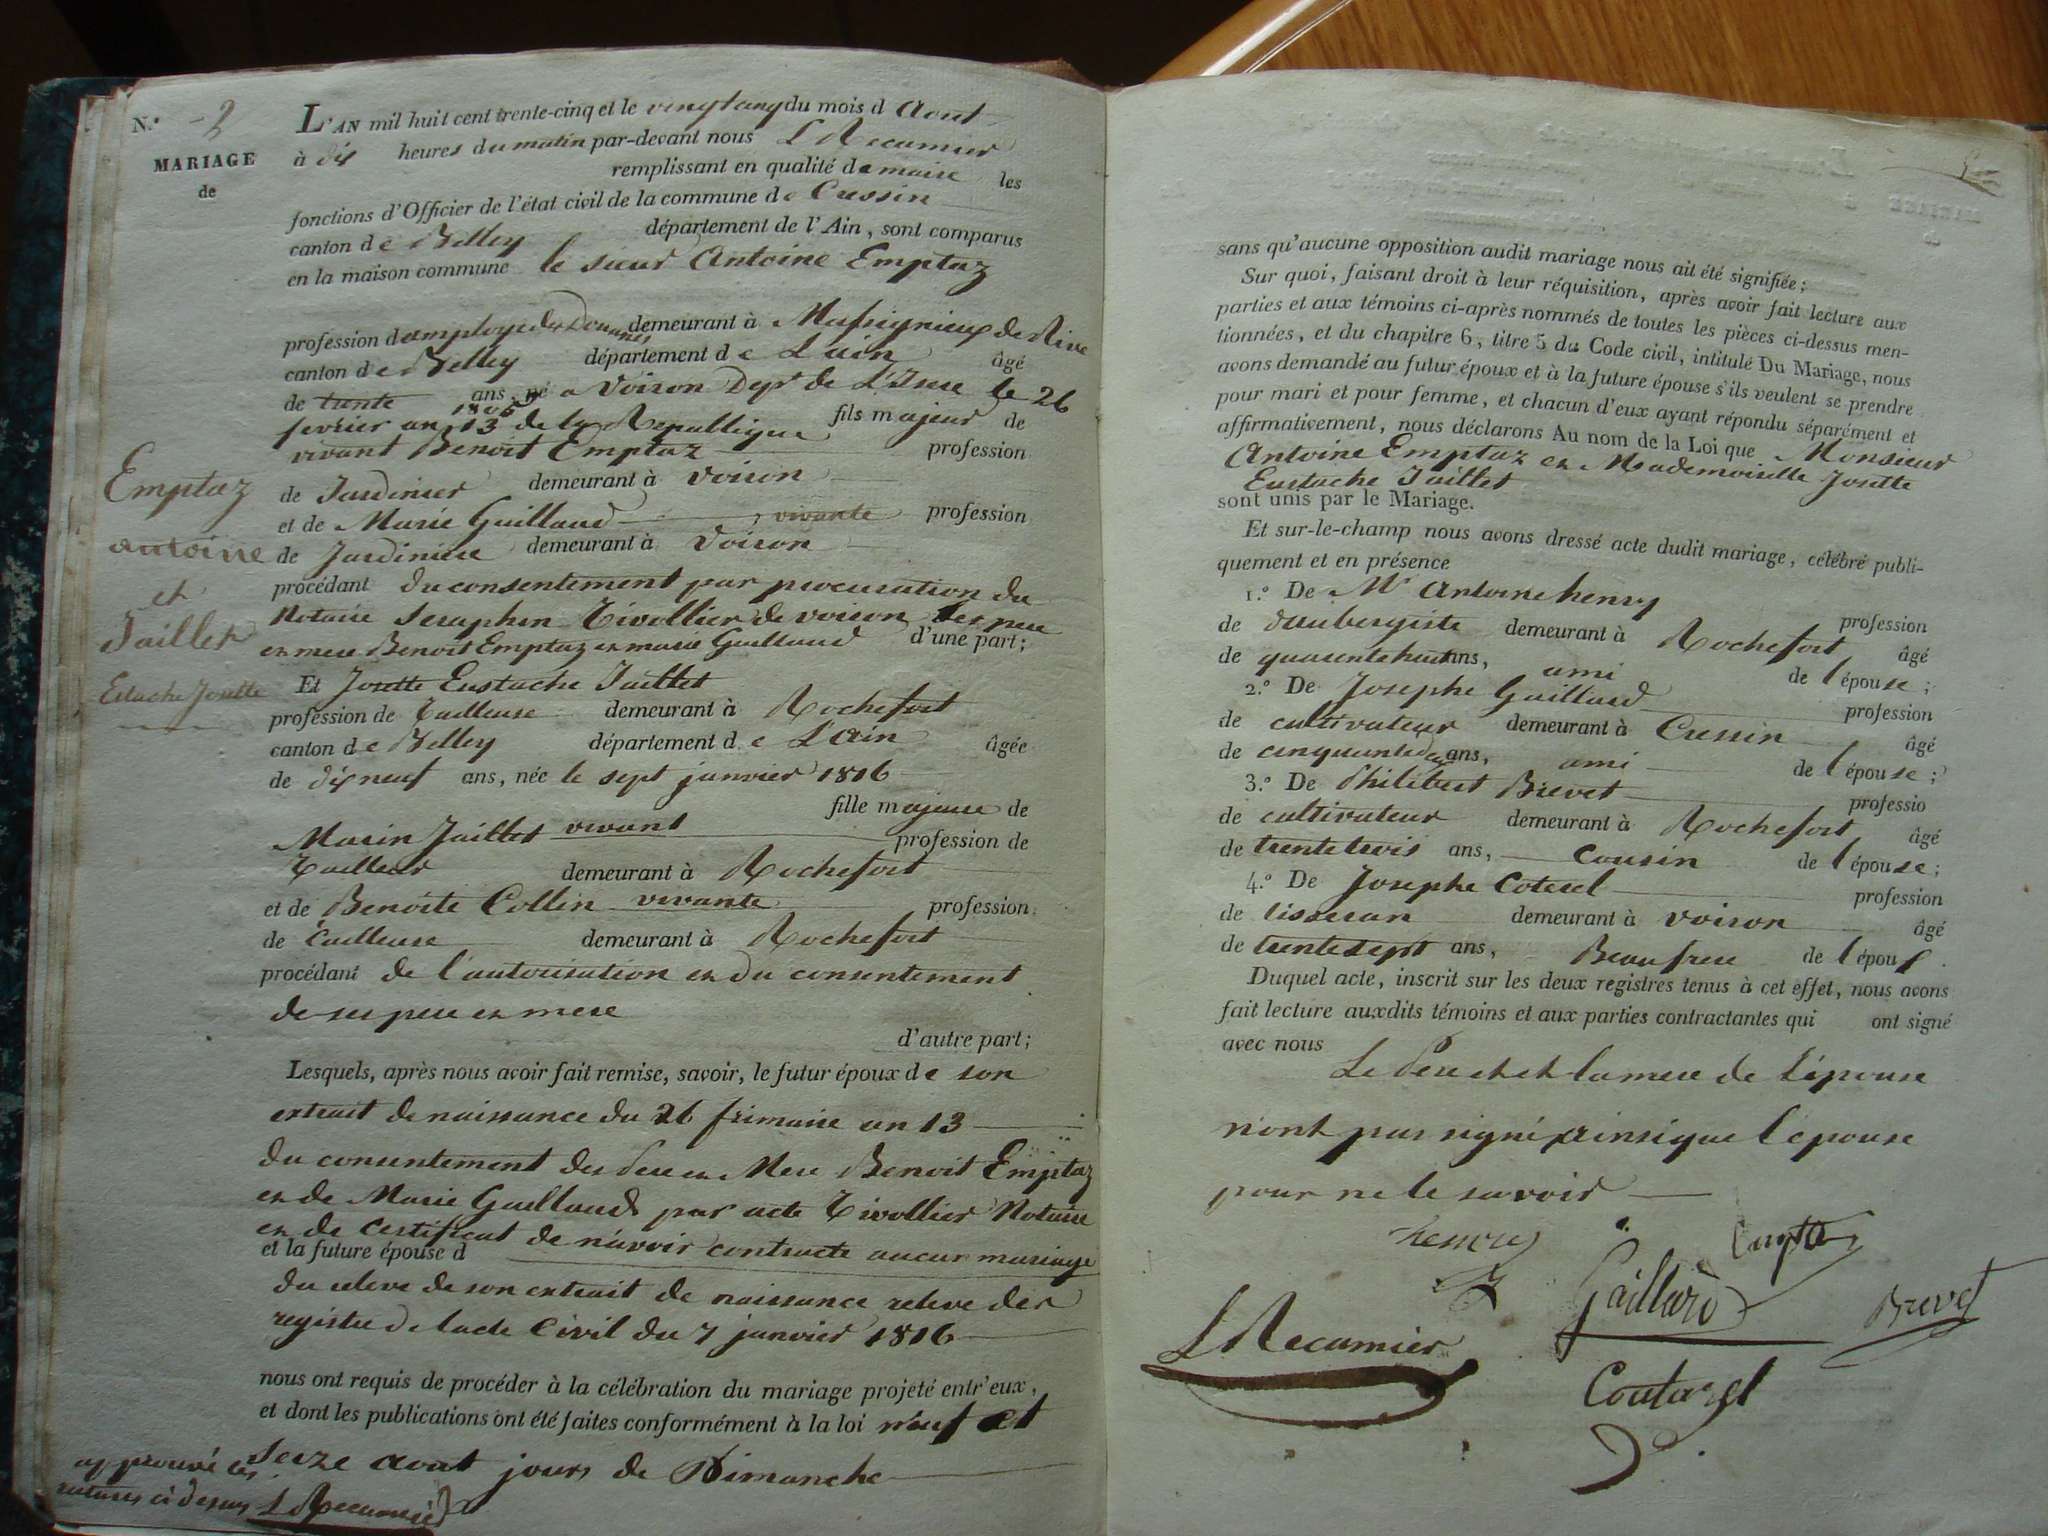 N.º 2
MARIAGE
de
Emptaz
antoine
et
Jaillet
Estache Josette
L'AN mil huit cent trente-cinq et le vingt cinq du mois d Aout
à dix heures du matin par-devant nous L Recamier
remplissant en qualité de maire les
fonctions d'Officier de l'état civil de la commune de Cressin
canton de Belley département de l'Ain, sont comparus
en la maison commune le sieur Antoine Emptaz
profession d employé des Douanes demeurant à Massignieux de Rive
canton de Belley département de L'ain âgé
de trente ans, né a Voiron Dept de L'Isere le 26
1805
fevrier an 13 de la Republique fils majeur de
vivant Benoit Emptaz profession
de Jardinier demeurant à Voiron
et de Marie Gaillaud vivante profession
de Jardiniere demeurant à Voiron
procédant du consentement par procuration du
Notaire Seraphin Tivollier de voiron ses pere
et mere Benoit Emptaz et marie Guillaud d'une part;
Et Josette Eustache Jaillet
profession de Tailleuse demeurant à Rochefort
canton de Belley département de L'ain âgée
de dix neuf ans, née le sept janvier 1816
fille majeure de
Marin Jaillet vivant profession de
Tailleur demeurant à Rochefort
et de Benoite Collin vivante profession
de Tailleuse demeurant à Rochefort
procédant de l'autorisation et du consentement
de ses pere et mere
d'autre part;
Lesquels, après nous avoir fait remise, savoir, le futur époux de son
extrait de naissance du 26 frimaire an 13
du consentement des Pere et Mere Benoit Emptaz
et de Marie Guillaud par acte Tivollier Notaire
et de certificat de n'avoir contracté aucun mariage
et la future épouse d
du releve de son extrait de naissance releve des
registre de lacte Civil du 7 janvier 1816
nous ont requis de procéder à la célébration du mariage projeté entr'eux,
et dont les publications ont été faites conformément à la loi neuf et
Seize aout jours de Dimanche
approuvé les
ratures ci dessus L Recamier
sans qu'aucune opposition audit mariage nous ait été signifiée;
Sur quoi, faisant droit à leur réquisition, après avoir fait lecture aux
parties et aux témoins ci-après nommés de toutes les pièces ci-dessus men-
tionnées, et du chapitre 6, titre 5 du Code civil, intitulé Du Mariage, nous
avons demandé au futur époux et à la future épouse s'ils veulent se prendre
pour mari et pour femme, et chacun d'eux ayant répondu séparément et
affirmativement, nous déclarons Au nom de la Loi que Monsieur
Antoine Emptaz et Mademoiselle Josette
Eustache Jaillet
sont unis par le Mariage.
Et sur-le-champ nous avons dressé acte dudit mariage, célébré publi-
quement et en présence
1.º De Mr Antoine henry profession
de daubergiste demeurant à Rochefort âgé
de quarentehuit ans, ami de l'épouse;
2.º De Josephe Gaillard profession
de cultivateur demeurant à Cressin âgé
de cinquante ans, ami de l'épouse;
3.º De Philibert Brevet professio
de cultivateur demeurant à Rochefort âgé
de trentetrois ans, cousin de l'épouse;
4.º De Josephe Coterel profession
de tisseran demeurant à voiron âgé
de trentesept ans, Beaufrere de l'épou
Duquel acte, inscrit sur les deux registres tenus à cet effet, nous avons
fait lecture auxdits témoins et aux parties contractantes qui ont signé
avec nous
Le Pere et la mere de l'épouse
n'ont pas signé ainsi que l'epouse
pour ne le savoir
henry
Emptaz
Gaillard
Brevet
L Recamier
Coutarel